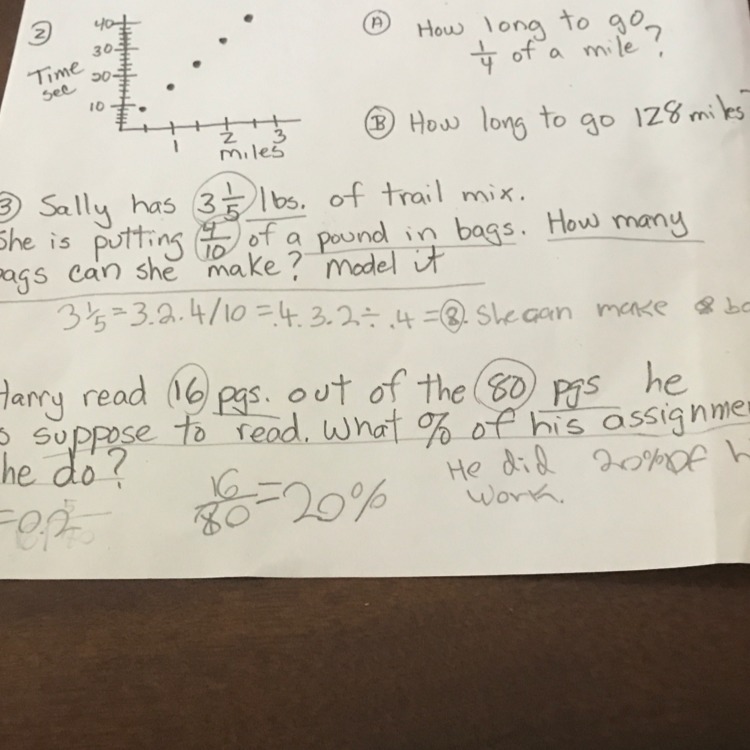 ② 40 Ⓐ How long to go
30 1/4 of a mile?
Time 20
sec
10 Ⓑ How long to go 128 miles
1 2 3
miles
③ Sally has 3 1/5 lbs. of trail mix.
She is putting 4/10 of a pound in bags. How many
bags can she make? Model it
3 1/5 = 3.2. 4/10 = .4. 3.2 ÷ .4 = 8. She can make 8 ba
Harry read 16 pgs. out of the 80 pgs he
s suppose to read. What % of his assignme
he do?
He did 20% of h
work.
16/80 = 20%
= 0.2